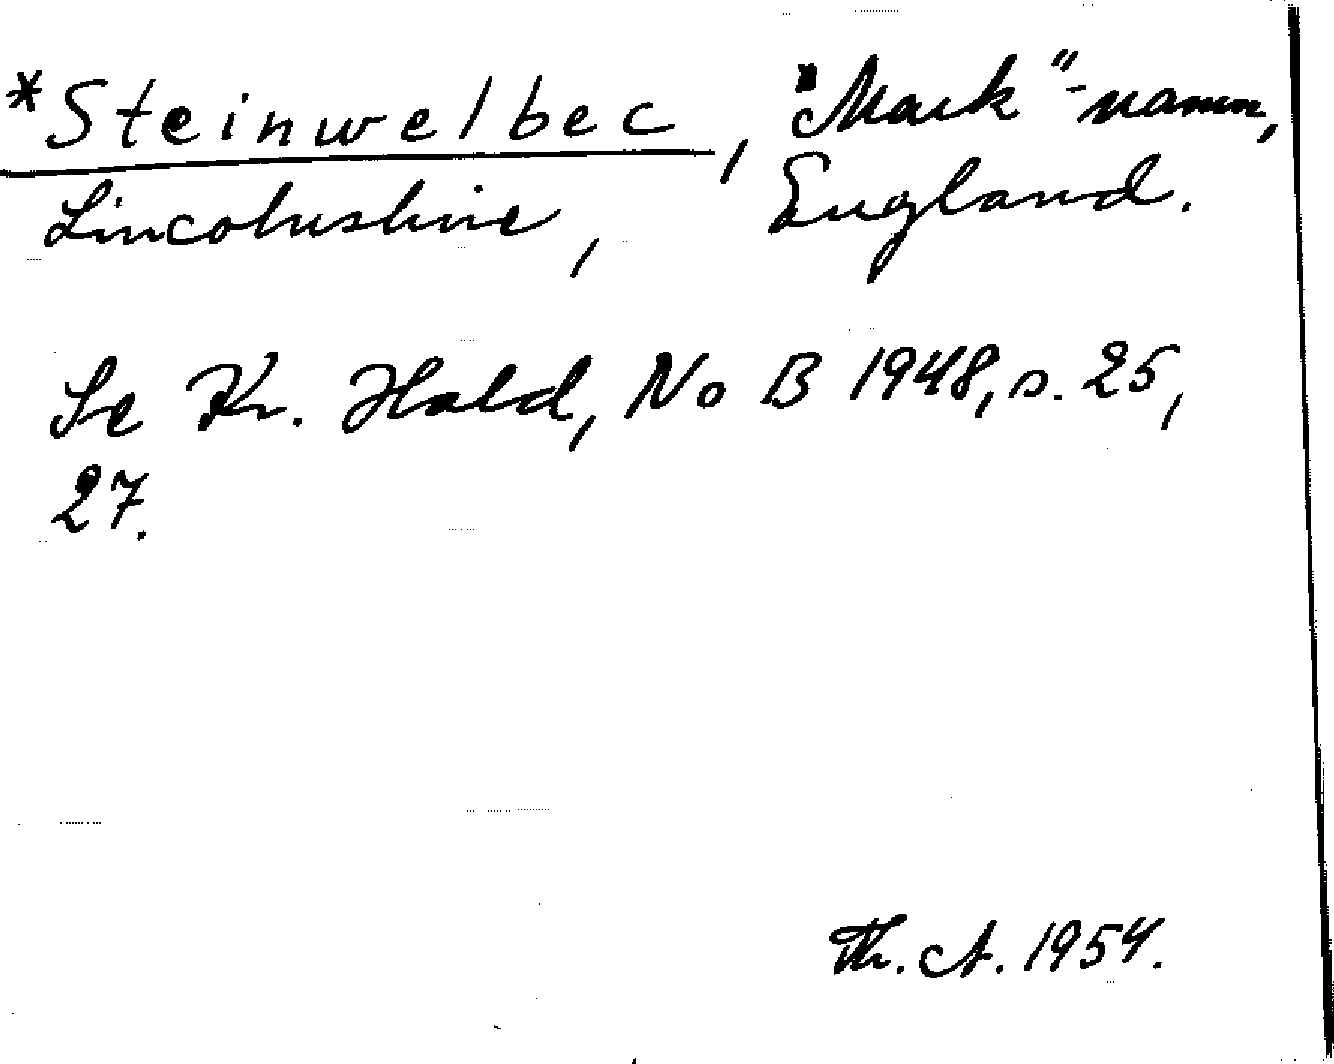 *Steinwelbec, "Mark"-namn,
Lincolnshire, England.
Se Kr. Hald, No B 1948, s. 25,
27.
Th. A. 1954.